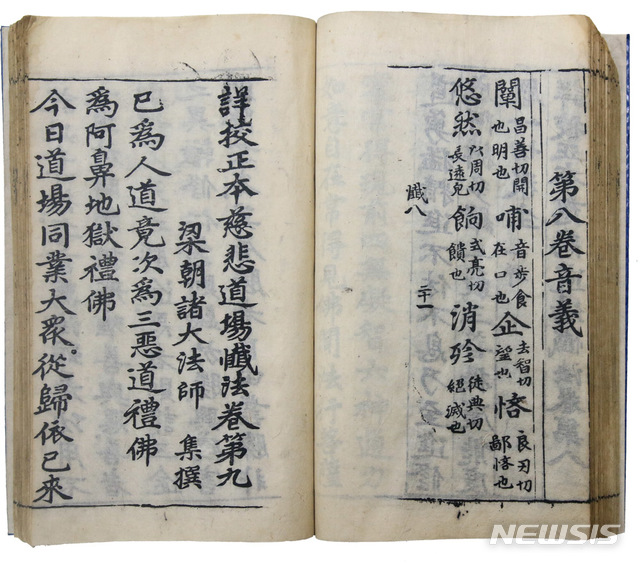 第八卷音義
闡 昌善切開也明也 哺 音步食在口也 企 去智切望也 悋 良刃切鄙悋也
悠然 以周切長遠皃 餉 式亮切饋也 消殄 徒典切絕滅也
懺八 二十一
詳校正本慈悲道場懺法卷第九
梁朝諸大法師 集撰
已爲人道竟次爲三惡道禮佛
爲阿鼻地獄禮佛
今日道場同業大衆。從歸依已來
NEWSIS